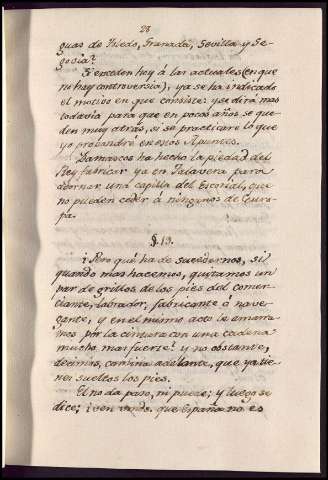 28
guas de Toledo, Granada, Sevilla y Se-
govia?
Si exceden hoy á las actuales (en que
no hay controversia), ya se ha indicado
el motivo en que consiste: y se dirá mas
todavia para que en pocos años se que-
den muy atrás, si se practicare lo que
yo propondré en estos Apuntes.
Damascos ha hecho la piedad del
Rey fabricar ya en Talavera para
adornar una capilla del Escorial, que
no pueden ceder á ningunos de Euro-
pa.
§. 13.
¿Pero qué ha de sucedernos, si
quando mas hacemos, quitamos un
par de grillos de los pies del comer-
ciante, labrador, fabricante ó nave-
gante, y en el mismo acto le amarra-
mos por la cintura con una cadena
mucho mas fuerte? y no obstante,
decimos, camina adelante, que ya tie-
nes sueltos los pies.
El no da paso, ni puede; y luego se
dice; ¿ven vmds. que España no es